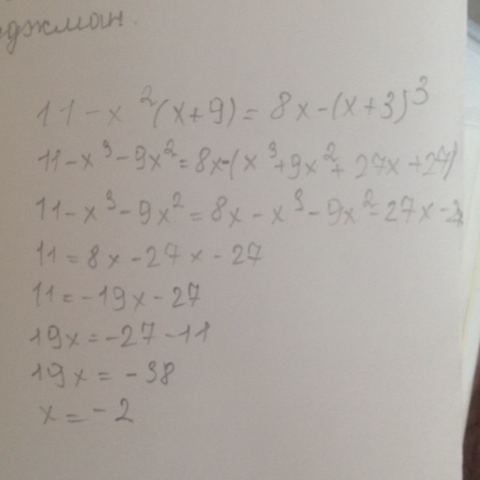 11 - x²(x+9) = 8x - (x+3)³
11 - x³ - 9x² = 8x - (x³ + 9x² + 27x + 27)
11 - x³ - 9x² = 8x - x³ - 9x² - 27x - 2
11 = 8x - 27x - 27
11 = -19x - 27
19x = -27 - 11
19x = -38
x = -2